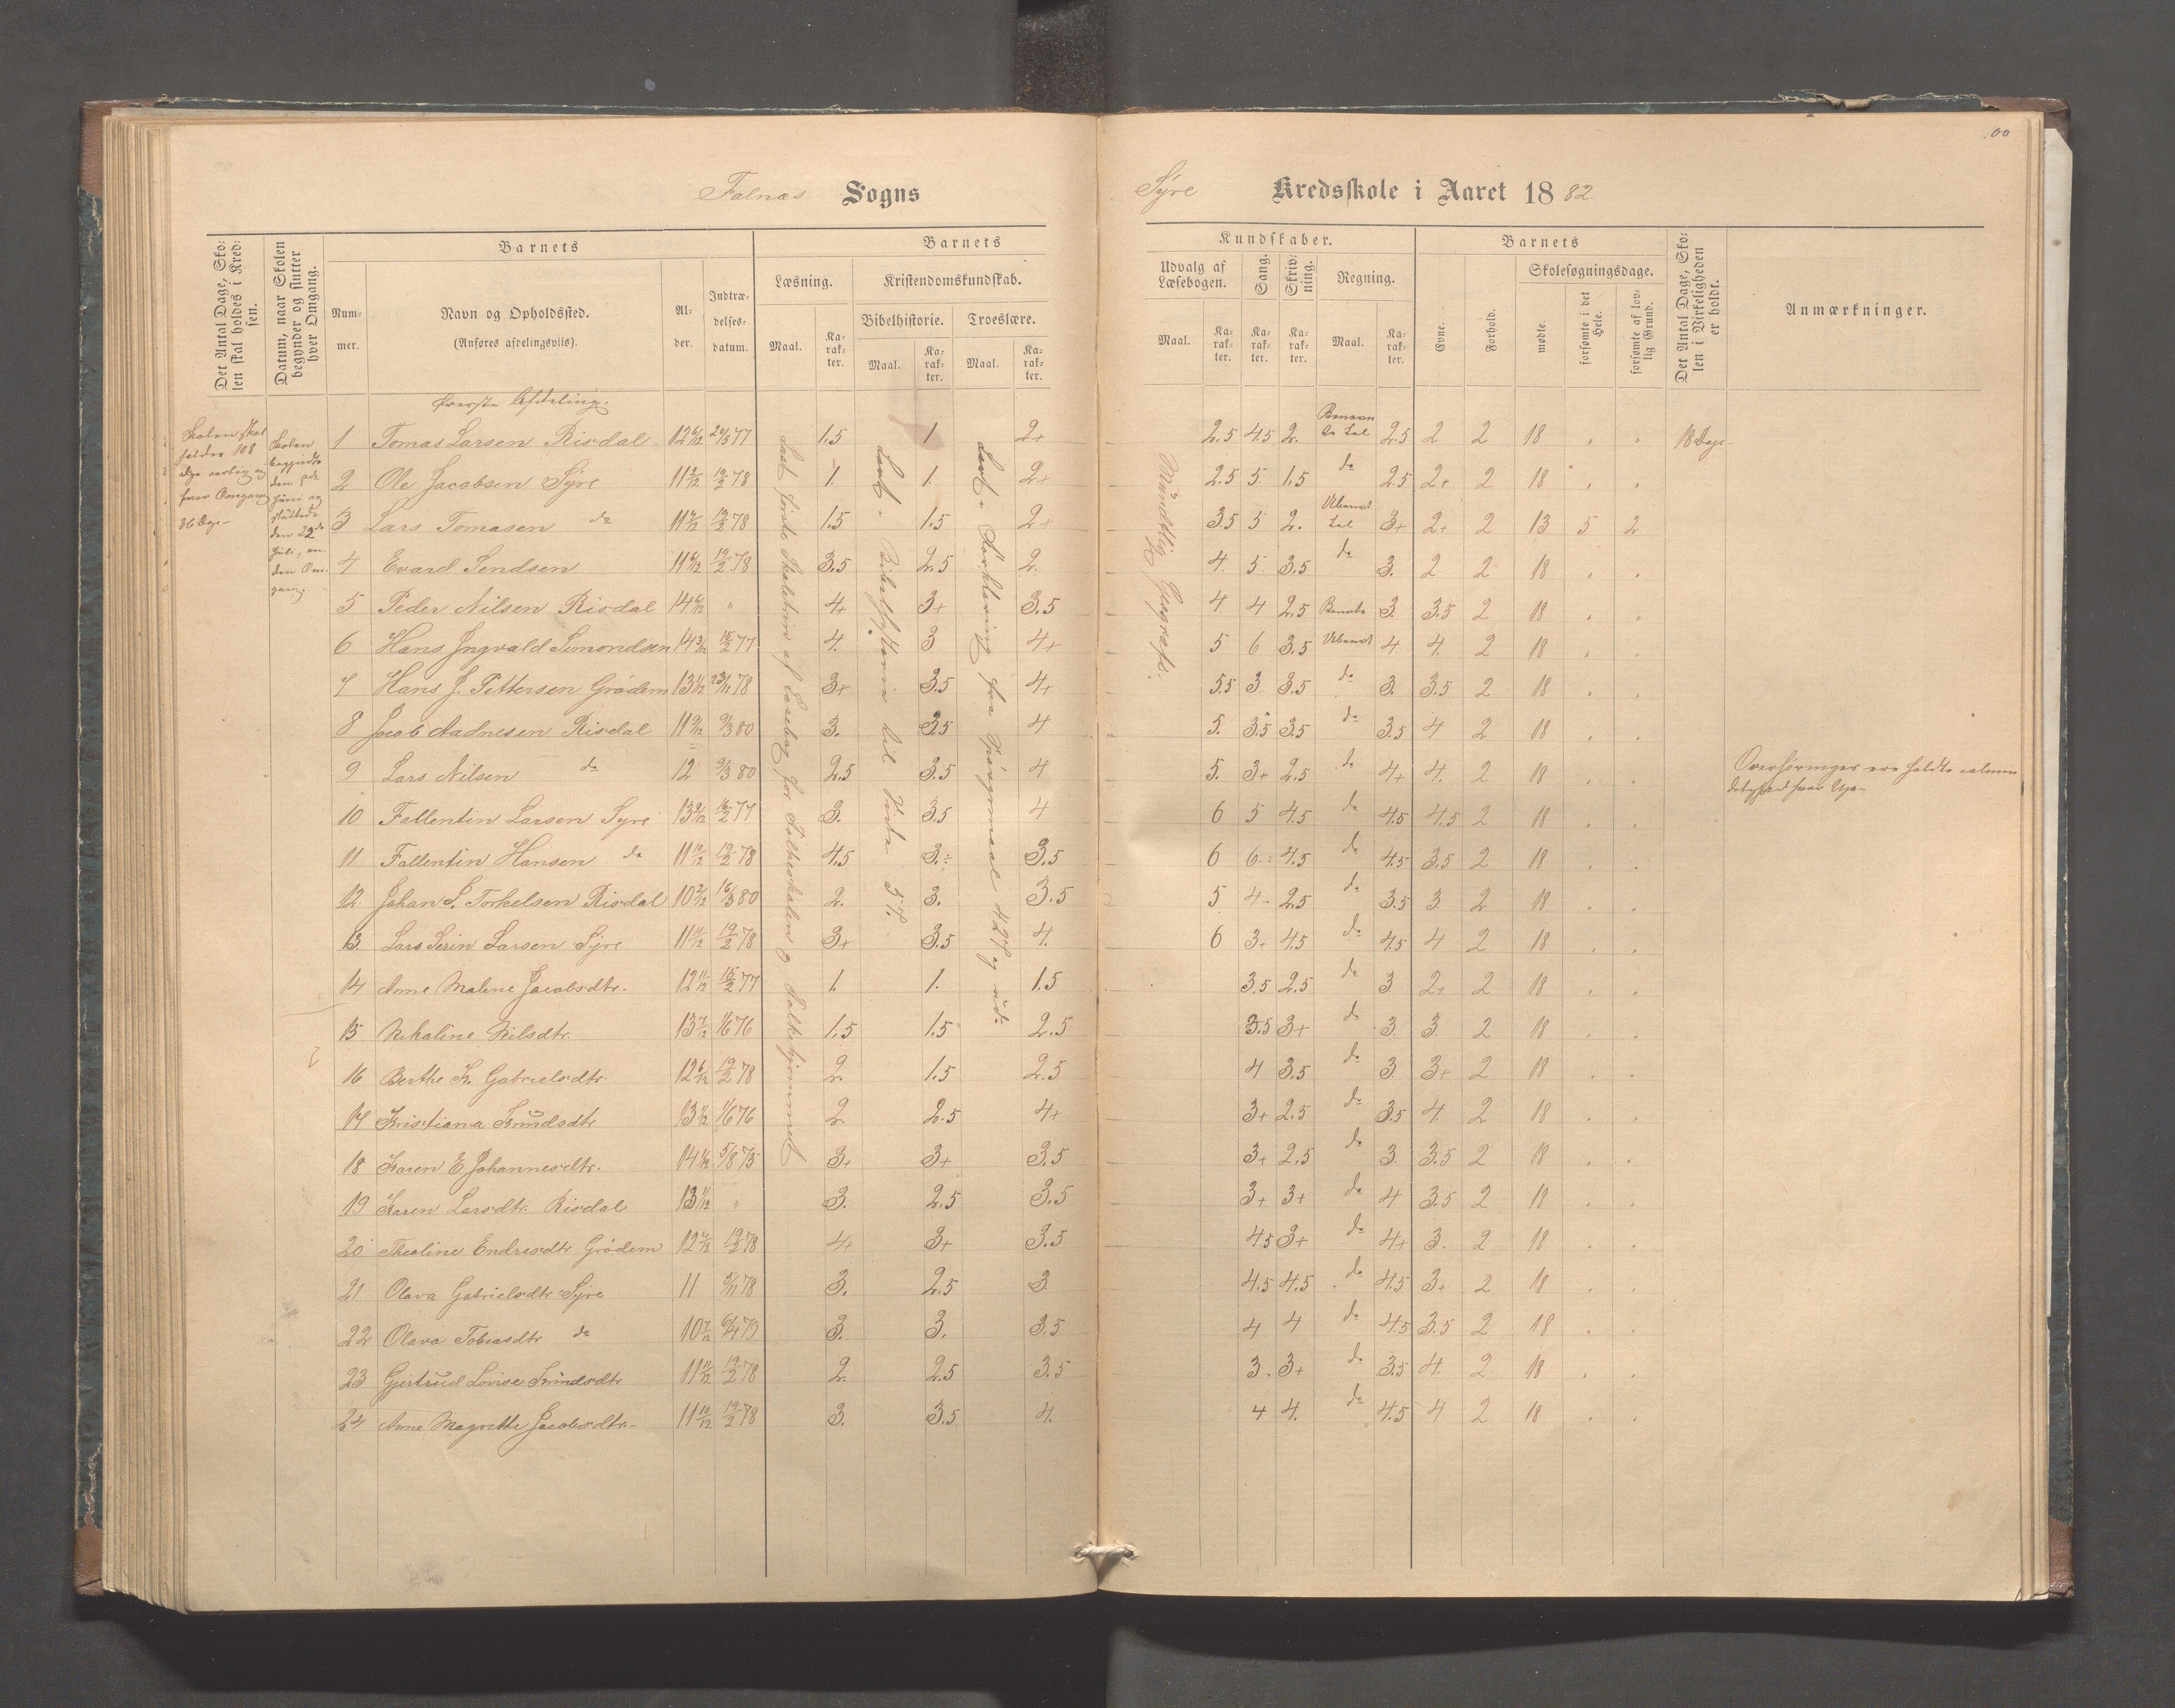 Falnæs Sogns
Syre Kredsskole i Aaret 1882
Det Antal Dage, Skolen skal holdes i Kredsen.
Datum, naar Skolen begynder og slutter hver Omgang.
Barnets
Nummer.
Navn og Opholdssted.
(Anføres afdelingsvis).
Alder.
Indtrædelsesdatum.
Barnets
Læsning.
Kristendomskundskab.
Bibelhistorie. Troeslære.
Maal. Karakter. Maal. Karakter. Maal. Karakter.
Kundskaber.
Udvalg af Læsebogen. Sang. Skrivning. Regning.
Maal. Karakter. Karakter. Karakter. Maal. Karakter.
Barnets
Evne. Forhold.
Skolesøgningsdage.
mødte. forsømte i det Hele. forsømte af lovlig Grund.
Det Antal Dage, Skolen i Virkeligheden er holdt.
Anmærkninger.
Øverste Afdeling.
Skolen skal
holdes 108
Dage aarlig og
hver Omgang
36 Dage
Skolen
begyndte
den
Juni og
sluttede
den 22de
Juli, anden Omgang.
Læst første Skoletrin af Læsebog for Folkeskolen og Folkehjemmet
Lært Bibelhistorie til Side 57.
Lært Forklaring fra Spørgsmaal 427 og ud
Mundtlig Geografi.
1 Tomas Larsen Risdal 12 6/12 20/5 77 1.5 1 2+ 2.5 4.5 2. 2.5 2 2 18 18 Dage
2 Ole Jacobsen Syre 11 2/12 19/2 78 1. 1. 2+ 2.5 5 1.5 do 2.5 2+ 2 18
3 Lars Tomasen do 11 7/12 19/2 78 1.5 1.5 2+ 3.5 5 2. Ubenevt Tal 3+ 2+ 2 13 5 2
4 Evard Sendsen 11 6/12 19/2 78 3.5 2.5 2. 4. 5 3.5 do 3. 2 2 18
5 Peder Nilsen Risdal 14 6/12 " 4+ 3+ 3.5 4. 4 2.5 3. 3.5 2 18
6 Hans Ingvald Simondsen 14 3/12 15/2 77 4. 3 4+ 5 6 3.5 Ubenevt 4. 4. 2 18
7 Hans J. Pettersen Grødem 13 1/12 23/11 78 3+ 3.5 4+ 5.5 3 3.5 do 3. 3.5 2 18
8 Jacob Aadnesen Risdal 11 9/12 9/3 80 3. 3.5 4 5. 3.5 3.5 do 3.5 4 2 18
9 Lars Nilsen do 12 9/3 80 2.5 3.5 4 5. 3+ 2.5 do 4+ 4. 2 18
Overhøringer ere holdte
10 Fallentin Larsen Syre 13 2/12 16/2 77 3. 3.5 4 6 5 4.5 do 4.5 4.5 2 18
11 Fallentin Hansen do 11 10/12 19/2 78 4.5 3.÷ 3.5 6 6 4.5 do 4.5 3.5 2 18
12 Johan S. Torkelsen Risdal 10 2/12 16/3 80 2. 3. 3.5 5 4 2.5 do 3.5 3 2 18
13 Lars Serin Larsen Syre 11 11/12 19/2 78 3+ 3.5 4. 6 3+ 4.5 do 4.5 4 2 18
14 Anne Malene Jacobsdtr. 12 11/12 15/2 77 1. 1. 1.5 3.5 2.5 do 3 2+ 2 18
15 Nikoline Nilsdtr. 13 7/12 1/6 76 1.5 1.5 2.5 3.5 3+ do 3 3 2 18
16 Berthe K. Gabrielsdtr. 12 6/12 19/2 78 2. 1.5 2.5 4 3.5 do 3 3+ 2 18
17 Kristiana Knudsdtr 13 1/12 1/6 76 2. 2.5 4+ 3+ 2.5 do 3.5 4. 2 18
18 Karen E Johannesdtr. 14 1/12 5/8 75 3+ 3+ 3.5 3+ 2.5 do 3 3.5 2 18
19 Karen Larsdtr. Risdal 13 1/12 " 3. 2.5 3.5 3+ 3+ do 4 3.5 2 18
20 Theoline Endresdtr Grødem 12 7/12 19/2 78 4+ 3+ 3.5 4.5 3+ do 4+ 3. 2 18
21 Olava Gabrielsdtr Syre 11 5/11 78 3. 2.5 3 4.5 4.5 do 4.5 3+ 2 18
22 Olava Tobiasdtr do 10 7/12 6/4 79 3. 3. 3.5 4 4 do 4.5 3.5 2 18
23 Gjertrud Lovise Knudsdtr 11 11/12 19/2 78 2. 2.5 3.5 3 3+ do 3.5 4. 2 18
24 Anne Magrethe Jacobsdtr. 11 10/12 19/2 78 3. 3.5 4. 4 4. do 4.5 4 2 18